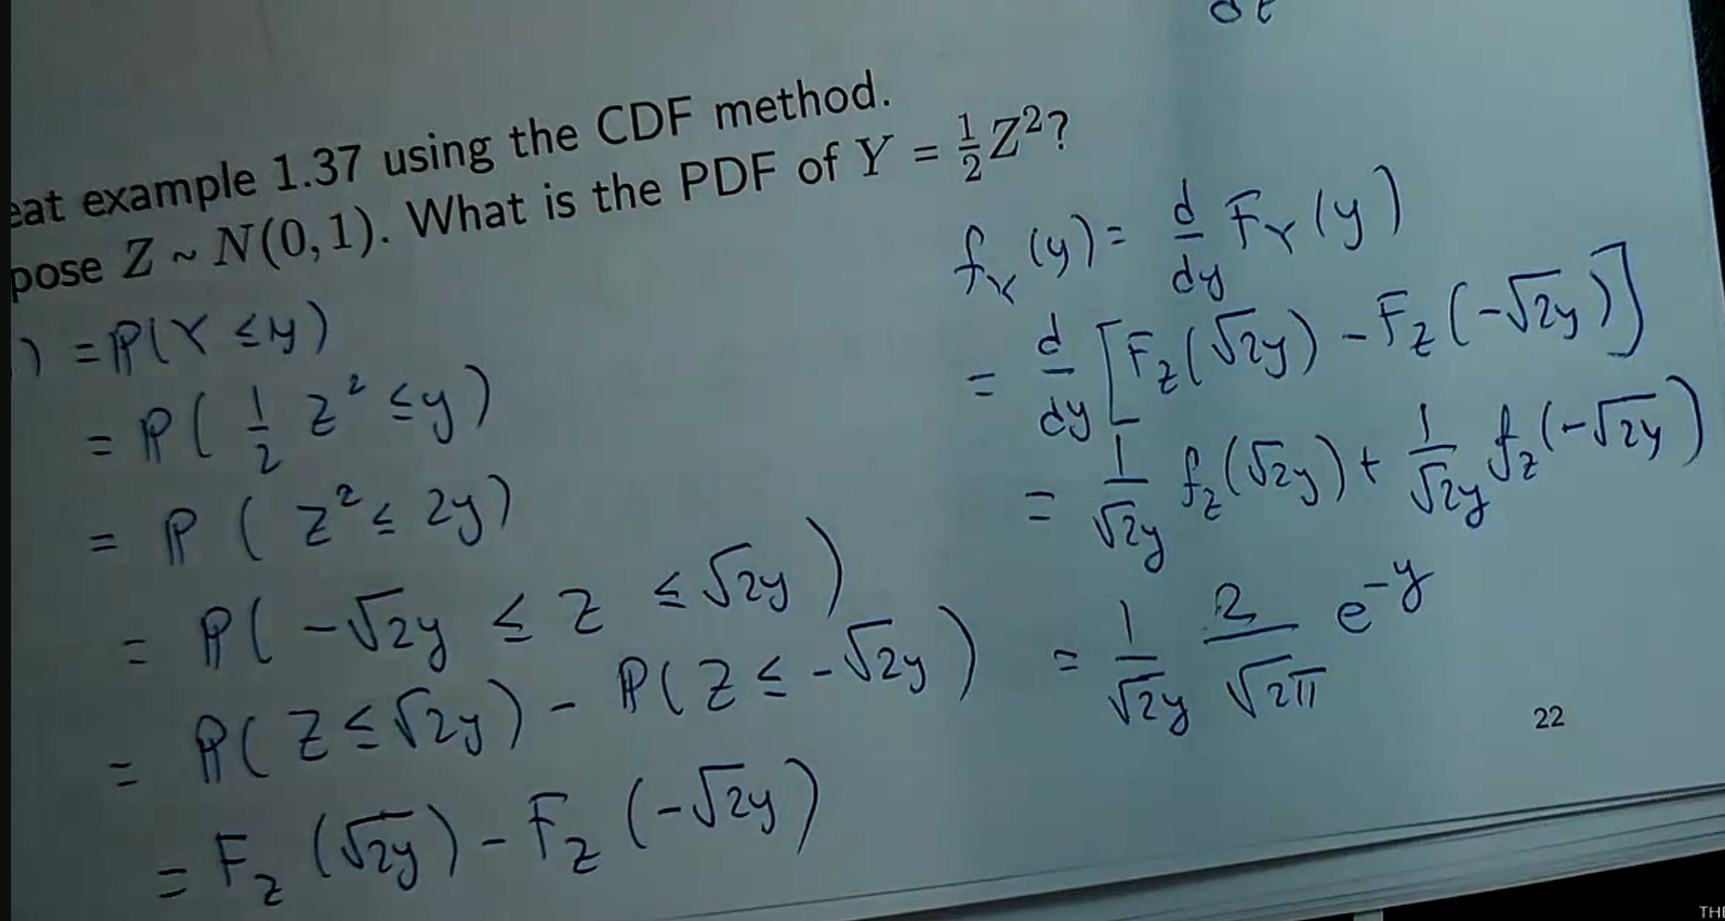 dt
eat example 1.37 using the CDF method.
pose Z ~ N(0, 1). What is the PDF of Y = ½Z²?
) = ℙ(Y ≤ y)
= ℙ( 1/2 Z² ≤ y)
= ℙ ( Z² ≤ 2y)
= ℙ( -√2y ≤ Z ≤ √2y )
= ℙ( Z ≤ √2y) - ℙ( Z ≤ -√2y )
= F_Z (√2y) - F_Z (-√2y)
f_Y (y) = d/dy F_Y (y)
= d/dy [F_Z(√2y) - F_Z(-√2y)]
= 1/√2y f_Z(√2y) + 1/√2y f_Z(-√2y)
= 1/√2y 2/√2π e^-y
22
TH